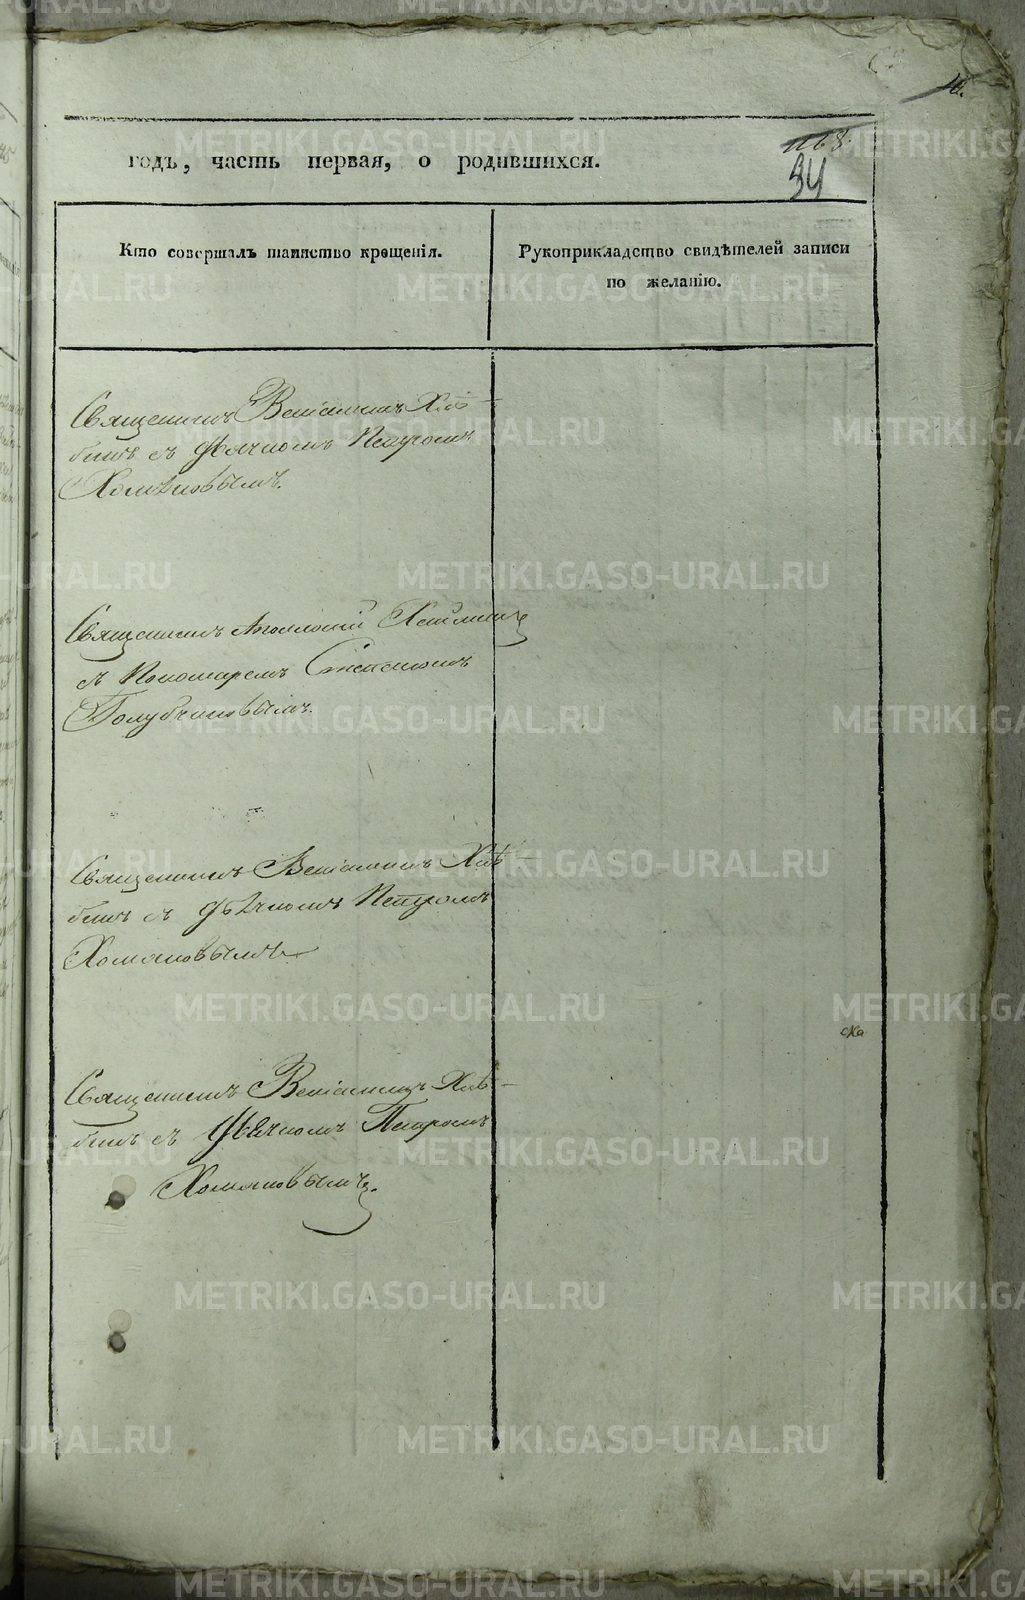 168.
34
годъ, часть первая, о родившихся.
Кто совершалъ таинство крещенія.
Рукоприкладство свидѣтелей записи
по желанію.
Священникъ Веніаминъ Хлѣ-
бинъ съ дьячкомъ Петромъ
Хомяковымъ.
Священникъ
съ Пономаремъ Стефаномъ
Голубчиковымъ.
Священникъ Веніаминъ Хлѣ-
бинъ съ дьячкомъ Петромъ
Хомяковымъ
Священникъ Веніаминъ Хлѣ-
бинъ съ дьячкомъ Петромъ
Хомяковымъ.
METRIKI.GASO-URAL.RU